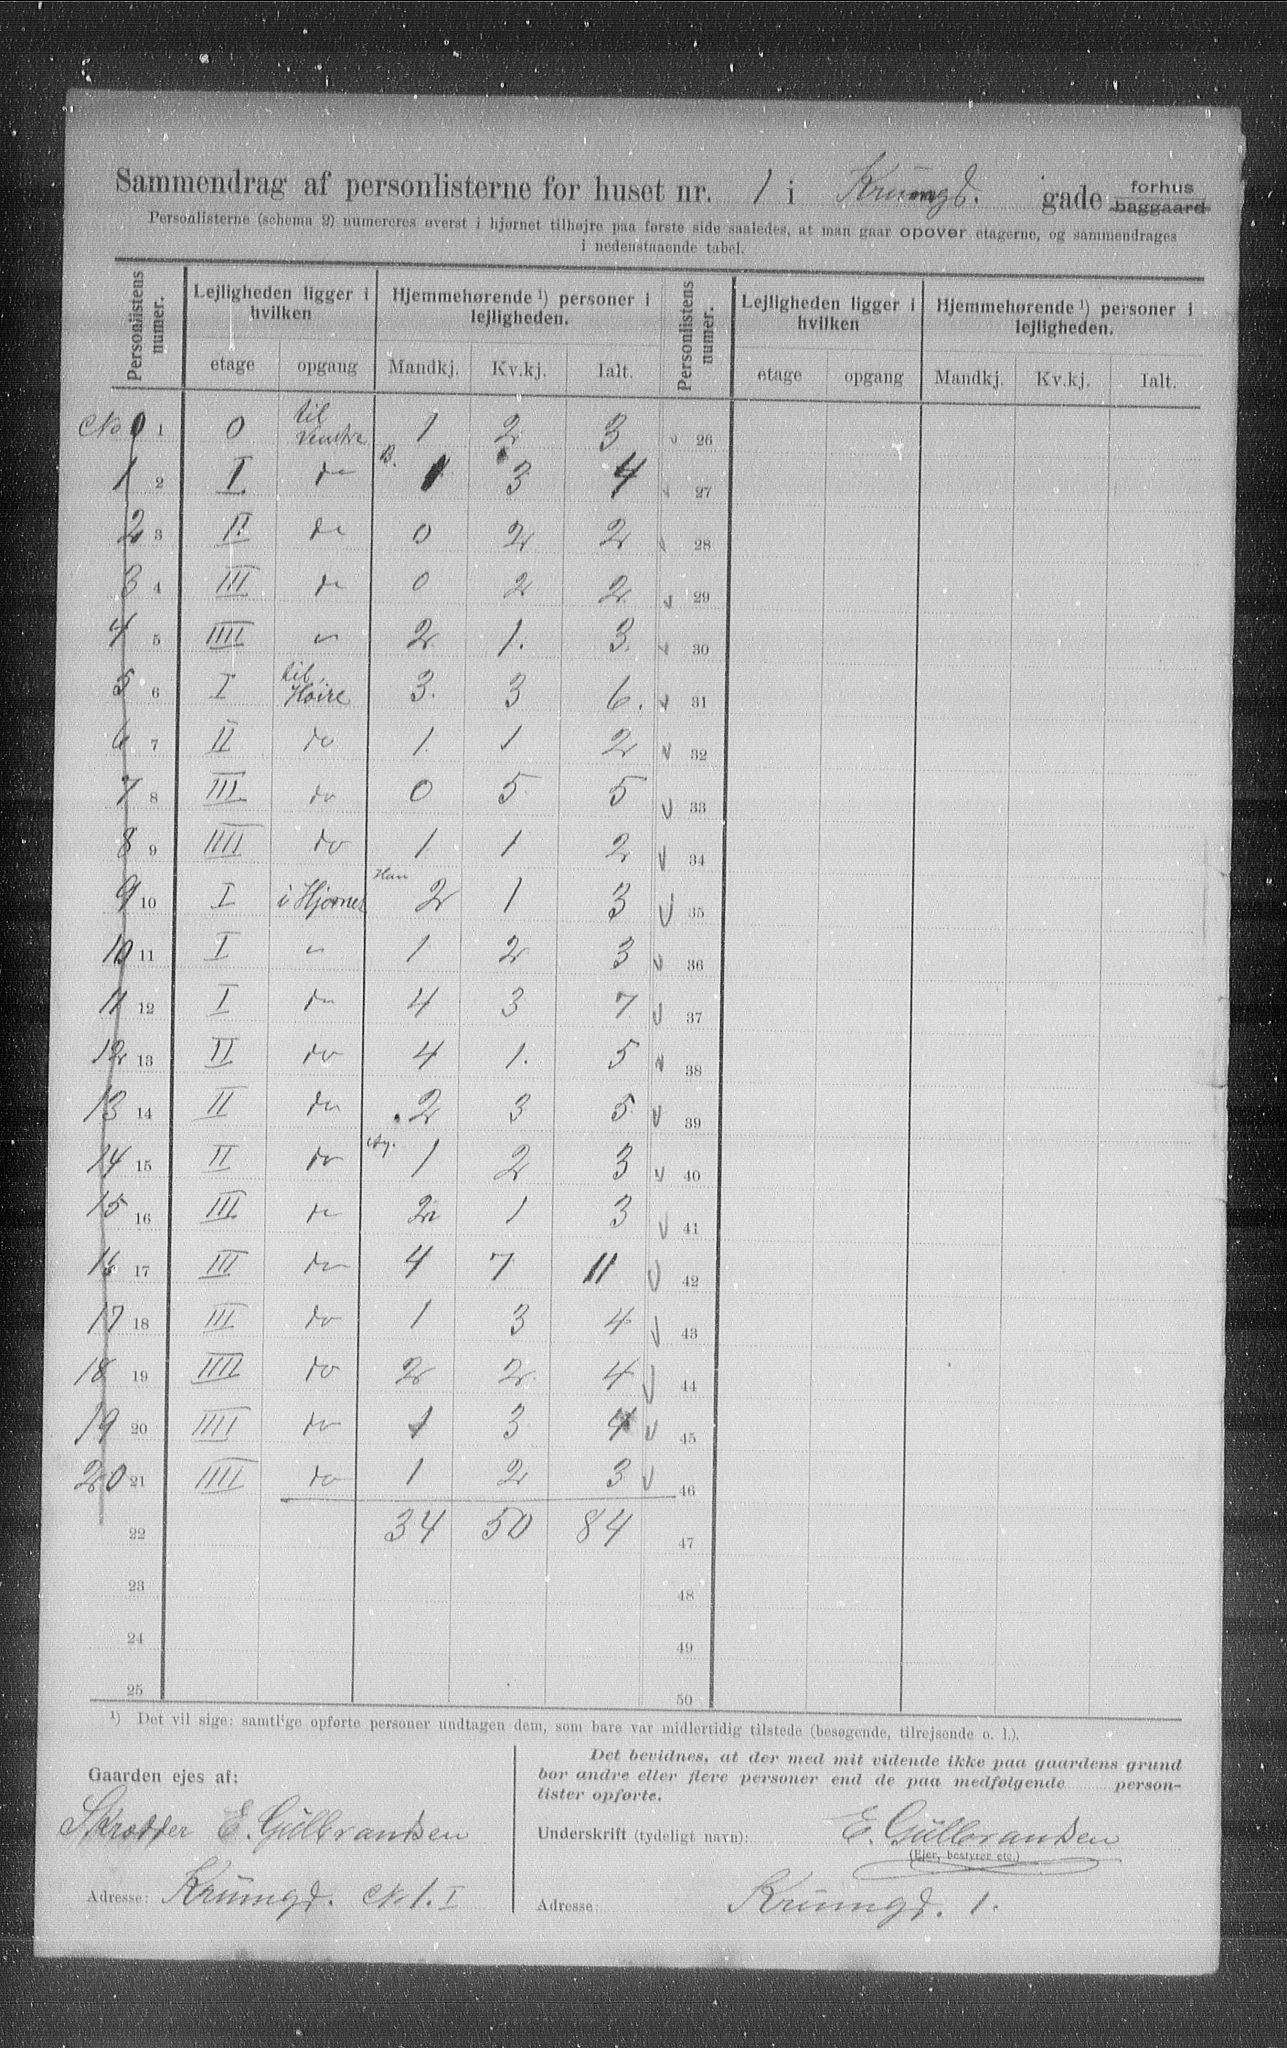 Sammendrag af personlisterne for huset nr. 1 i Krumgd. gade forhus baggaard
Personlisterne (schema 2) numereres øverst i hjørnet tilhøjre paa første side saaledes, at man gaar opover etagerne, og sammendrages
i nedenstaaende tabel.
Personlistens numer. Lejligheden ligger i hvilken Hjemmehørende ¹) personer i lejligheden. Personlistens numer. Lejligheden ligger i hvilken Hjemmehørende ¹) personer i lejligheden.
etage opgang Mandkj. Kv.kj. Ialt. etage opgang Mandkj. Kv.kj. Ialt.
No 0 1 0 til Venstre 1 2 3 26
1 2 I do B. 1 3 4 27
2 3 II do 0 2 2 28
3 4 III do 0 2 2 29
4 5 IIII " 2 1. 3. 30
5 6 I til Høire 3. 3 6. 31
6 7 II do 1 1 2 32
7 8 III do 0 5 5 33
8 9 IIII do 1 1 2 34
9 10 I i Hjørnet 2 1 3 35
10 11 I " 1 2 3 36
11 12 I do 4 3 7 37
12 13 II do 4 1. 5 38
13 14 II do 2 3 5 39
14 15 II do 1 2 3 40
15 16 III do 2 1 3 41
16 17 III do 4 7 11 42
17 18 III do 1 3 4 43
18 19 IIII do 2 2 4 44
19 20 IIII do 1 3 4 45
20 21 IIII do 1 2 3 46
22 34 50 84 47
23 48
24 49
25 50
¹) Det vil sige: samtlige opførte personer undtagen dem, som bare var midlertidig tilstede (besøgende, tilrejsende o. l.).
Gaarden ejes af:
Skrædder E. Gülbrandsen
Adresse: Krumgd. No 1. I
Det bevidnes, at der med mit vidende ikke paa gaardens grund
bor andre eller flere personer end de paa medfølgende person-
lister opførte.
Underskrift (tydeligt navn): E. Gülbrandsen
(Ejer, bestyrer etc.)
Adresse: Krumgd. 1.